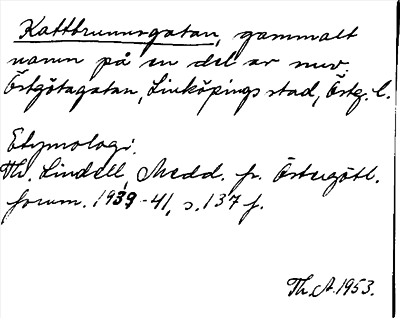 Kattbrunnsgatan, gammalt
namn på en del av nuv.
Östgötagatan, Linköpings stad, Östg. l.
Etymologi.
Th. Lindell, Medd. fr. Östergötl.
fornm. 1939-41, s. 137 f.
Th. A. 1953.